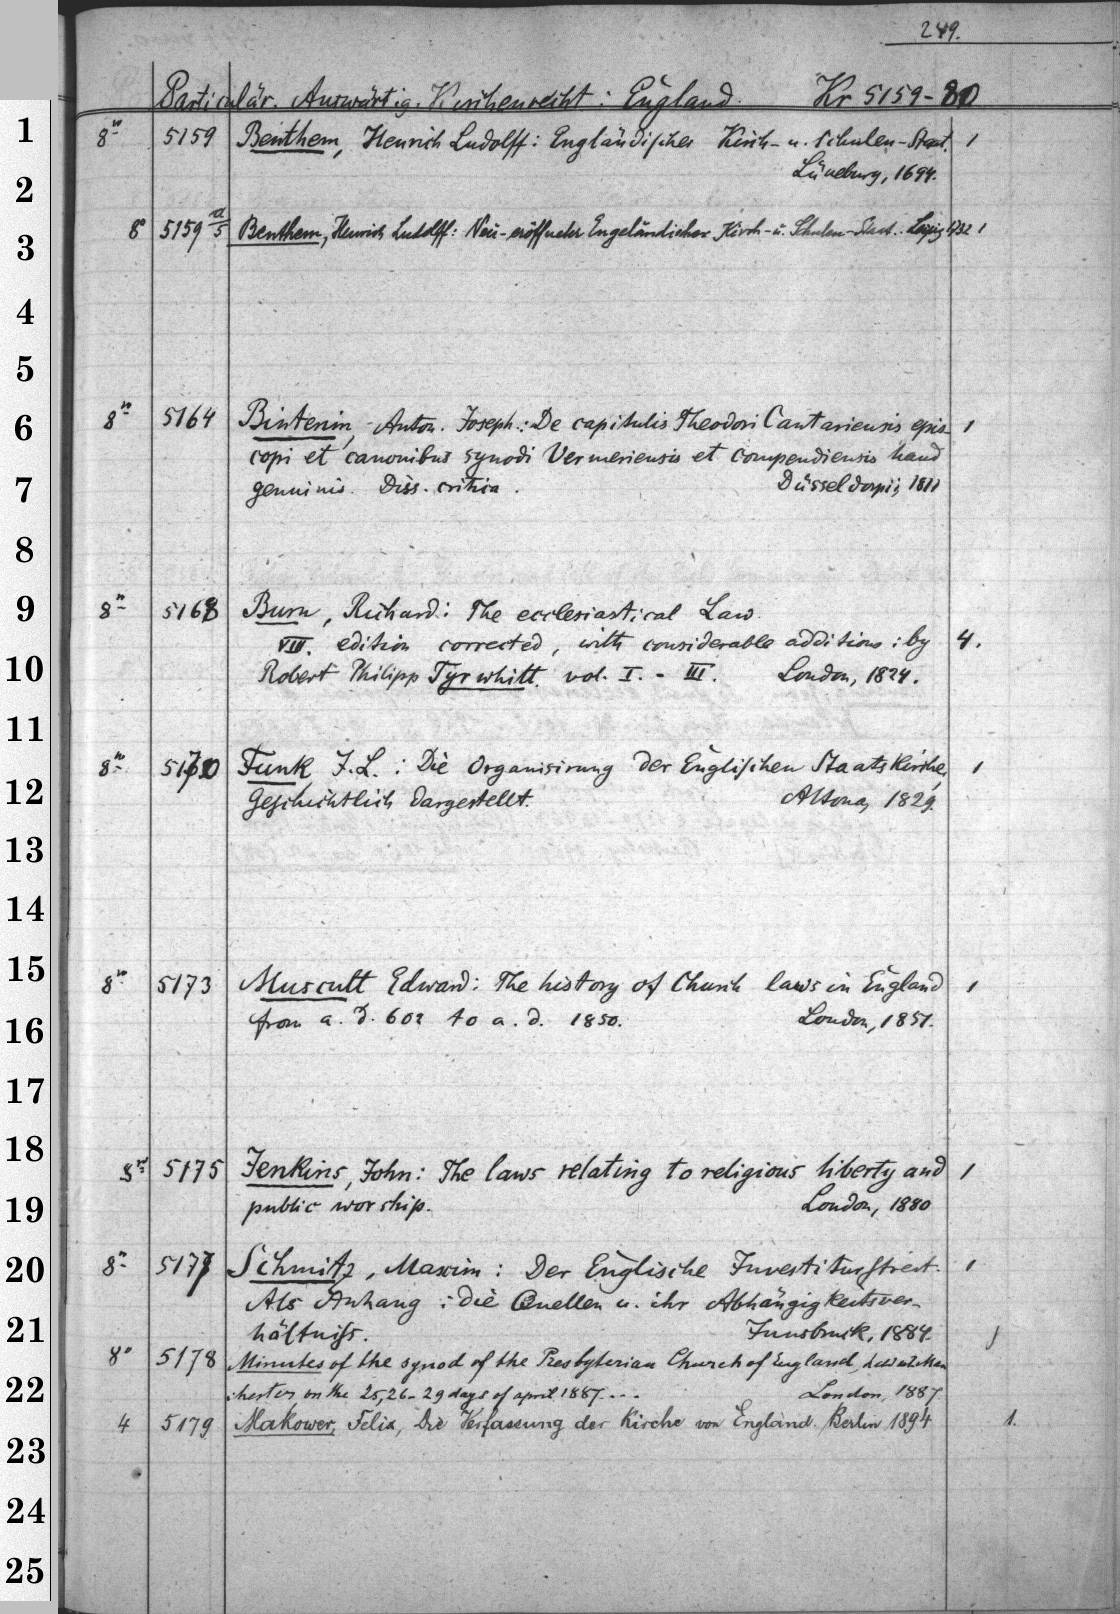 249.
Particulär. Auswärtig. Kirchenrecht: England. Kr 5159-80
1
8º 5159 Benthem, Henrich Ludolff: Engländischer Kirch- u. Schulen-Staat. 1
2
Lüneburg, 1694.
3
8º 5159 a/5 Benthem, Henrich Ludolff: Neu-eröffneter Engeländischer Kirch- u. Schulen-Staat. Leipzig 1732 1
4
5
6
8º 5164 Binterim, Anton. Joseph.: De capitulis Theodori Cantariensis epis- 1
copi et canonibus synodi Vermeriensis et compendiensis haud
7
genuinis. Diss. critica. Düsseldorpii, 1811
8
9
8º 5168 Burn, Richard: The ecclesiastical Law.
VIII. edition corrected, with considerable additions: by 4.
10
Robert Philipp Tyrwhitt. vol. I. - III. London, 1824.
11
8º 5170 Funk, F. L.: Die Organisirung der Englischen Staatskirche, 1
12
Geschichtlich dargestellt. Altona, 1829.
13
14
15
8º 5173 Muscutt Edward: The history of Church laws in England 1
16
from a. d. 602 to a. d. 1850. London, 1851.
17
18
8º 5175 Jenkins, John: The laws relating to religious liberty and 1
19
public worship. London, 1880
20
8º 5177 Schmitz, Maxim: Der Englische Investiturstreit. 1
Als Anhang: die Quellen u. ihr Abhängigkeitsver-
21
hältniss. Innsbruck, 1884.
8º 5178 Minutes of the synod of the Presbyterian Church of England, held at Man
22
chester on the 25, 26-29 days of april 1887. ... London, 1887
4 5179 Makower, Felix, Die Verfassung der Kirche von England. Berlin 1894 1.
23
24
25